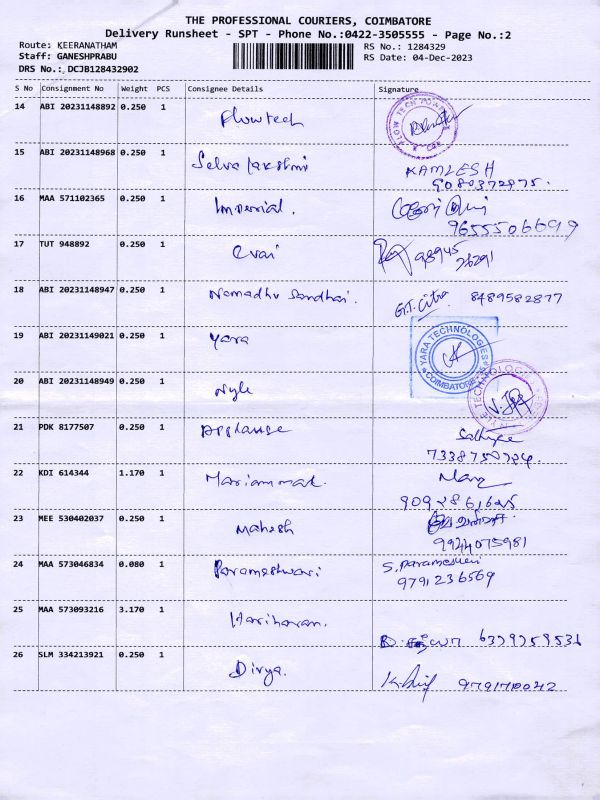 THE PROFESSIONAL COURIERS, COIMBATORE
Delivery Runsheet - SPT - Phone No.:0422-3505555 - Page No.:2
Route: KEERANATHAM
RS No.: 1284329
Staff: GANESHPRABU
RS Date: 04-Dec-2023
DRS No.: DCJB128432902
S No Consignment No Weight PCS Consignee Details Signature
14 ABI 20231148892 0.250 1 Flowtech
15 ABI 20231148968 0.250 1 Selva lakshmi KAMLESH
9080372875.
16 MAA 571102365 0.250 1 Imperial.
9655506699
17 TUT 948892 0.250 1 Ovai 98945
26291
18 ABI 20231148947 0.250 1 Nammadhu Sandhai. G.T. Citra 8489582877
19 ABI 20231149021 0.250 1 Yara YARA TECHNOLOGIES
COIMBATORE
20 ABI 20231148949 0.250 1 Nyle
21 PDK 8177507 0.250 1 Applause Sathya
22 KDI 614344 1.170 1 Mariammal.
23 MEE 530402037 0.250 1 Mahesh
9944075981
24 MAA 573046834 0.080 1 Parameshwari S. Parameshwari
9791236569
25 MAA 573093216 3.170 1 Hariharan.
6379759536
26 SLM 334213921 0.250 1 Divya. 9791710042